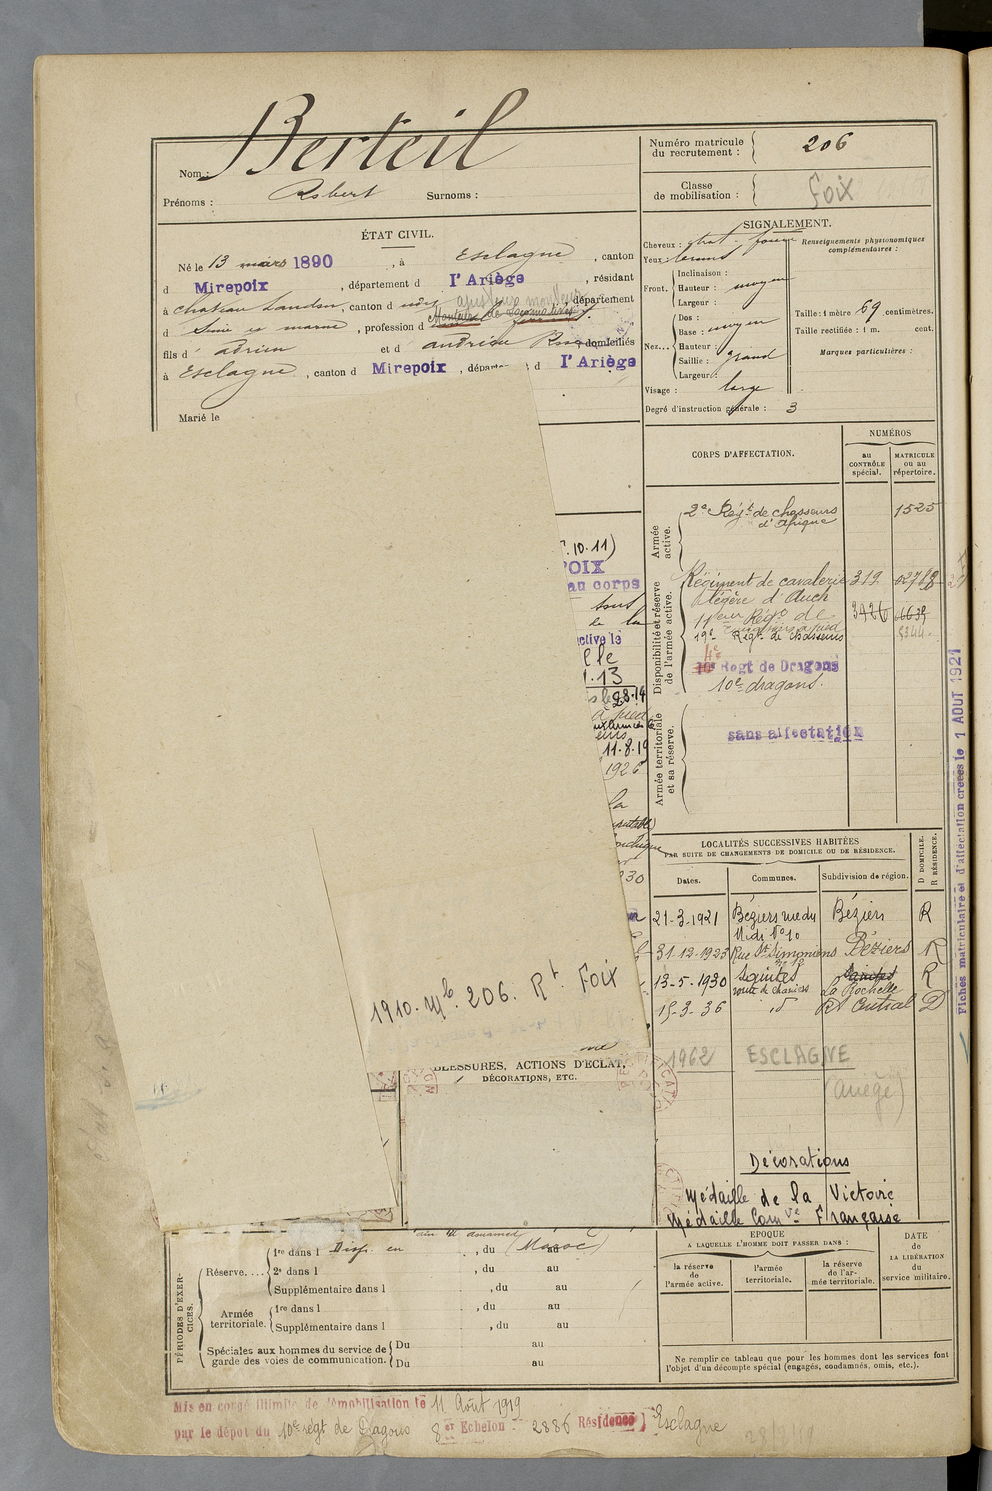 Berteil
Nom :
Prénoms : Robert Surnoms :
Numéro matricule du recrutement : 206
Classe de mobilisation : Foix
ÉTAT CIVIL.
Né le 13 mars 1890, à Esclagne, canton
d Mirepoix, département d l'Ariège, résidant
à chateau Landon, canton d udry, département
d Seine et marne, profession d
ajusteur monteur
Monteur de Locomotives
fils d' adrien et d andrieu Rose, domiciliés
à Esclagne, canton d Mirepoix, départe d l'Ariège
Marié le
SIGNALEMENT.
Cheveux : chat. foncé
Yeux :
Front. Inclinaison :
Hauteur : moyen
Largeur :
Nez... Dos :
Base : moyen
Hauteur :
Saillie : grand
Largeur :
Visage : large
Degré d'instruction générale : 3
Renseignements physionomiques complémentaires :
Taille : 1 mètre 69 centimètres.
Taille rectifiée : 1 m. cent.
Marques particulières :
CORPS D'AFFECTATION.
NUMÉROS
au CONTRÔLE spécial.
MATRICULE ou au répertoire.
Armée active.
2e Régt de chasseurs d'afrique 1525
Disponibilité et réserve de l'armée active.
Régiment de cavalerie 319
légère d'Auch
3426
19e Régt de chasseurs
4e
10e Regt de Dragons
10e dragons.
Armée territoriale et sa réserve.
sans affectation
.10.11)
FOIX
au corps
sous
de la
active le
le
.13
11.8.19
1926
la
30
LOCALITÉS SUCCESSIVES HABITÉES
PAR SUITE DE CHANGEMENTS DE DOMICILE OU DE RÉSIDENCE.
Dates. Communes. Subdivision de région. D DOMICILE. R RÉSIDENCE.
21-3-1921 Béziers rue du Midi No 10 Béziers R
31-12-1923 Rue St Simoniens Béziers R
13-5-1930 Saintes Saintes La Rochelle R
15-3-36 id Rt Central D
1962 ESCLAGNE
(Ariège)
Fiches matriculaire et d'affectation créées le 1 AOUT 1921
1910. Mle 206. Rt Foix
BLESSURES, ACTIONS D'ÉCLAT,
DÉCORATIONS, ETC.
Décorations
Médaille de la Victoire
Médaille Comve Française
PÉRIODES D'EXERCICES.
Réserve.... 1re dans l Disp. en , du (Maroc) au
2e dans l , du au
Supplémentaire dans l , du au
Armée territoriale. 1re dans l , du au
Supplémentaire dans l , du au
Spéciales aux hommes du service de garde des voies de communication. Du au
Du au
ÉPOQUE
A LAQUELLE L'HOMME DOIT PASSER DANS :
la réserve de l'armée active.
l'armée territoriale.
la réserve de l'armée territoriale.
DATE de LA LIBÉRATION du service militaire.
Ne remplir ce tableau que pour les hommes dont les services font
l'objet d'un décompte spécial (engagés, condamnés, omis, etc.).
Mis en congé illimité de démobilisation le 11 Août 1919
par le dépôt du 10e regt de Dragons 8er Echelon - 2886 Résidence Esclagne